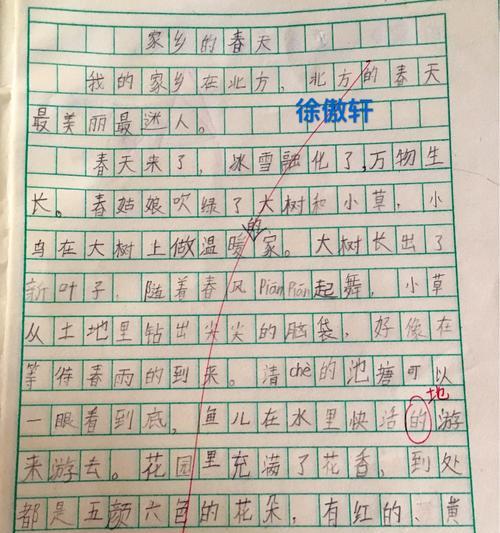 家乡的春天
我的家乡在北方，北方的春天
最美丽最迷人。
徐傲轩
春天来了，冰雪融化了，万物生
长。春姑娘吹绿了大树和小草，小
的
鸟在大树上做温暖家。大树长出了
新叶子，随着春风Piān Piān起舞，小草
从土地里钻出尖尖的脑袋，好像在
等待春雨的到来。清chè的池塘可以
地
一眼看到底，鱼儿在水里快活的游
来游去。花园里充满了花香，到处
都是五颜六色的花朵，有红的、黄